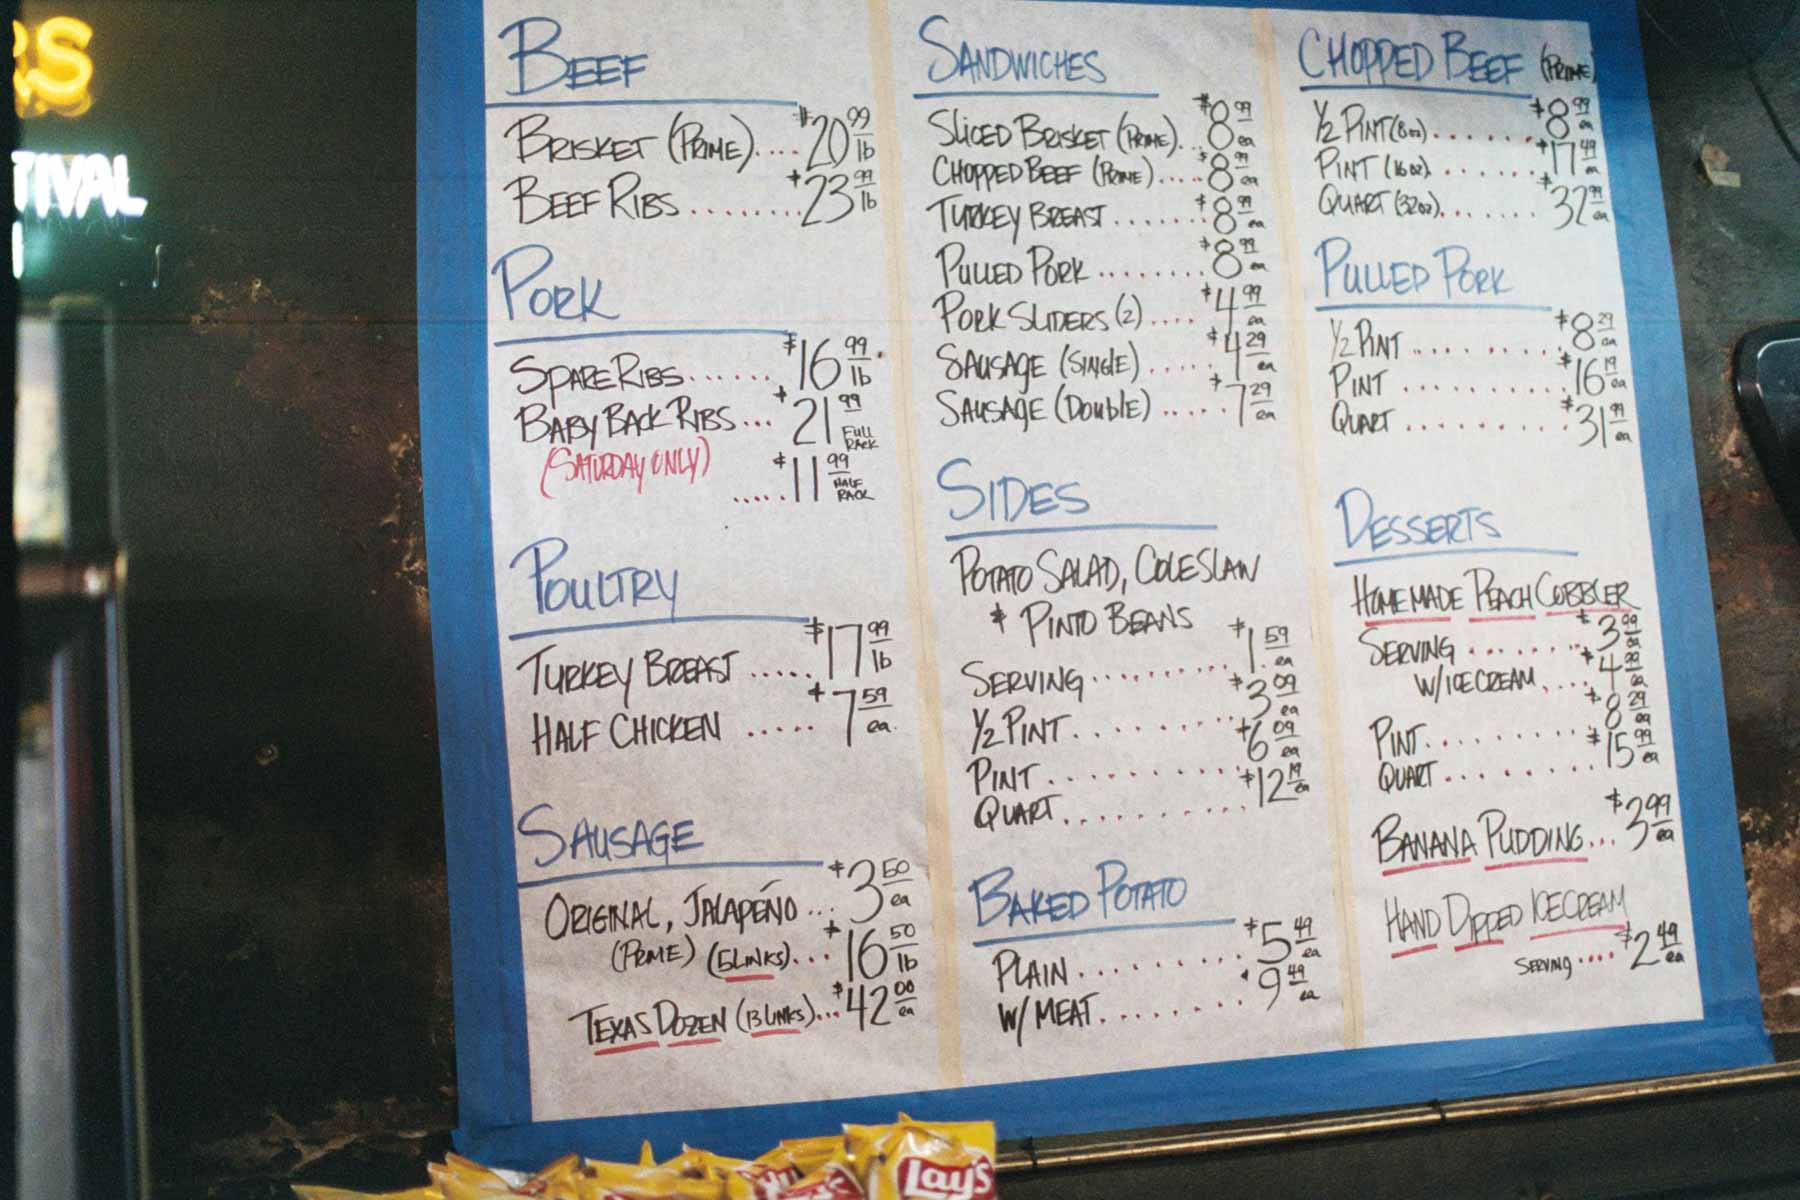 RS
TIVAL
BEEF
BRISKET (PRIME).... $20 99/lb
BEEF RIBS ........ $23 99/lb
PORK
SPARE RIBS...... $16 99/lb
BABY BACK RIBS... $21 99 FULL RACK
(SATURDAY ONLY)
..... $11 99 HALF RACK
POULTRY
TURKEY BREAST ..... $17 99/lb
HALF CHICKEN ..... $7 59/ea.
SAUSAGE
ORIGINAL, JALAPEÑO ... $3 50/ea
(PRIME) (5 LINKS)... $16 50/lb
TEXAS DOZEN (13 LINKS)... $42 00/ea
SANDWICHES
SLICED BRISKET (PRIME)... $8 99/ea
CHOPPED BEEF (PRIME).... $8 99/ea
TURKEY BREAST ....... $8 99/ea
PULLED PORK ........ $8 99/ea
PORK SLIDERS (2) .... $4 99/ea
SAUSAGE (SINGLE) ..... $4 29/ea
SAUSAGE (DOUBLE) ..... $7 29/ea
SIDES
POTATO SALAD, COLESLAW
& PINTO BEANS
SERVING ......... $1.59/ea
1/2 PINT......... $3 09/ea
PINT .......... $6 09/ea
QUART.......... $12 19/ea
BAKED POTATO
PLAIN ......... $5 49/ea
W/ MEAT........ $9 49/ea
CHOPPED BEEF (PRIME)
1/2 PINT (8oz)....... $8 99/ea
PINT (16oz)....... $17 49/ea
QUART (32oz)........ $32 99/ea
PULLED PORK
1/2 PINT ......... $8 29/ea
PINT .......... $16 19/ea
QUART .......... $31 99/ea
DESSERTS
HOMEMADE PEACH COBBLER
SERVING ....... $3 99/ea
W/ICE CREAM.... $4 99/ea
PINT......... $8 29/ea
QUART......... $15 99/ea
BANANA PUDDING... $3 99/ea
HAND DIPPED ICECREAM
SERVING .... $2 49/ea
Lay's